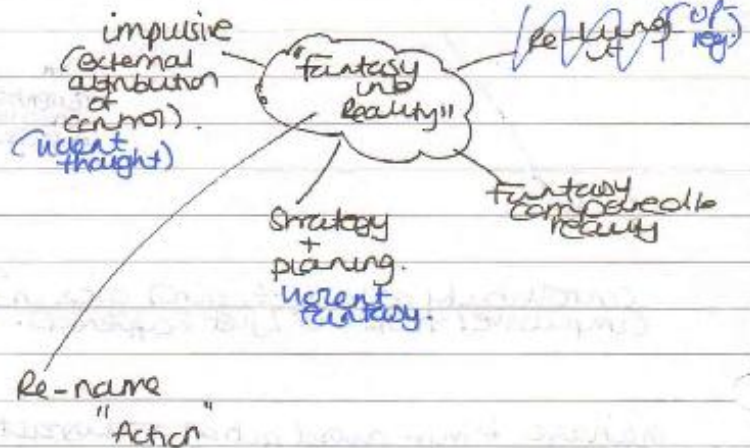 impulsive
(external
attribution
of
control).
(violent
thought)
"Fantasy
into
Reality"
Re-living
it
Fantasy
compared to
reality
Strategy
+
planning.
violent
fantasy.
Re-name
"Action"